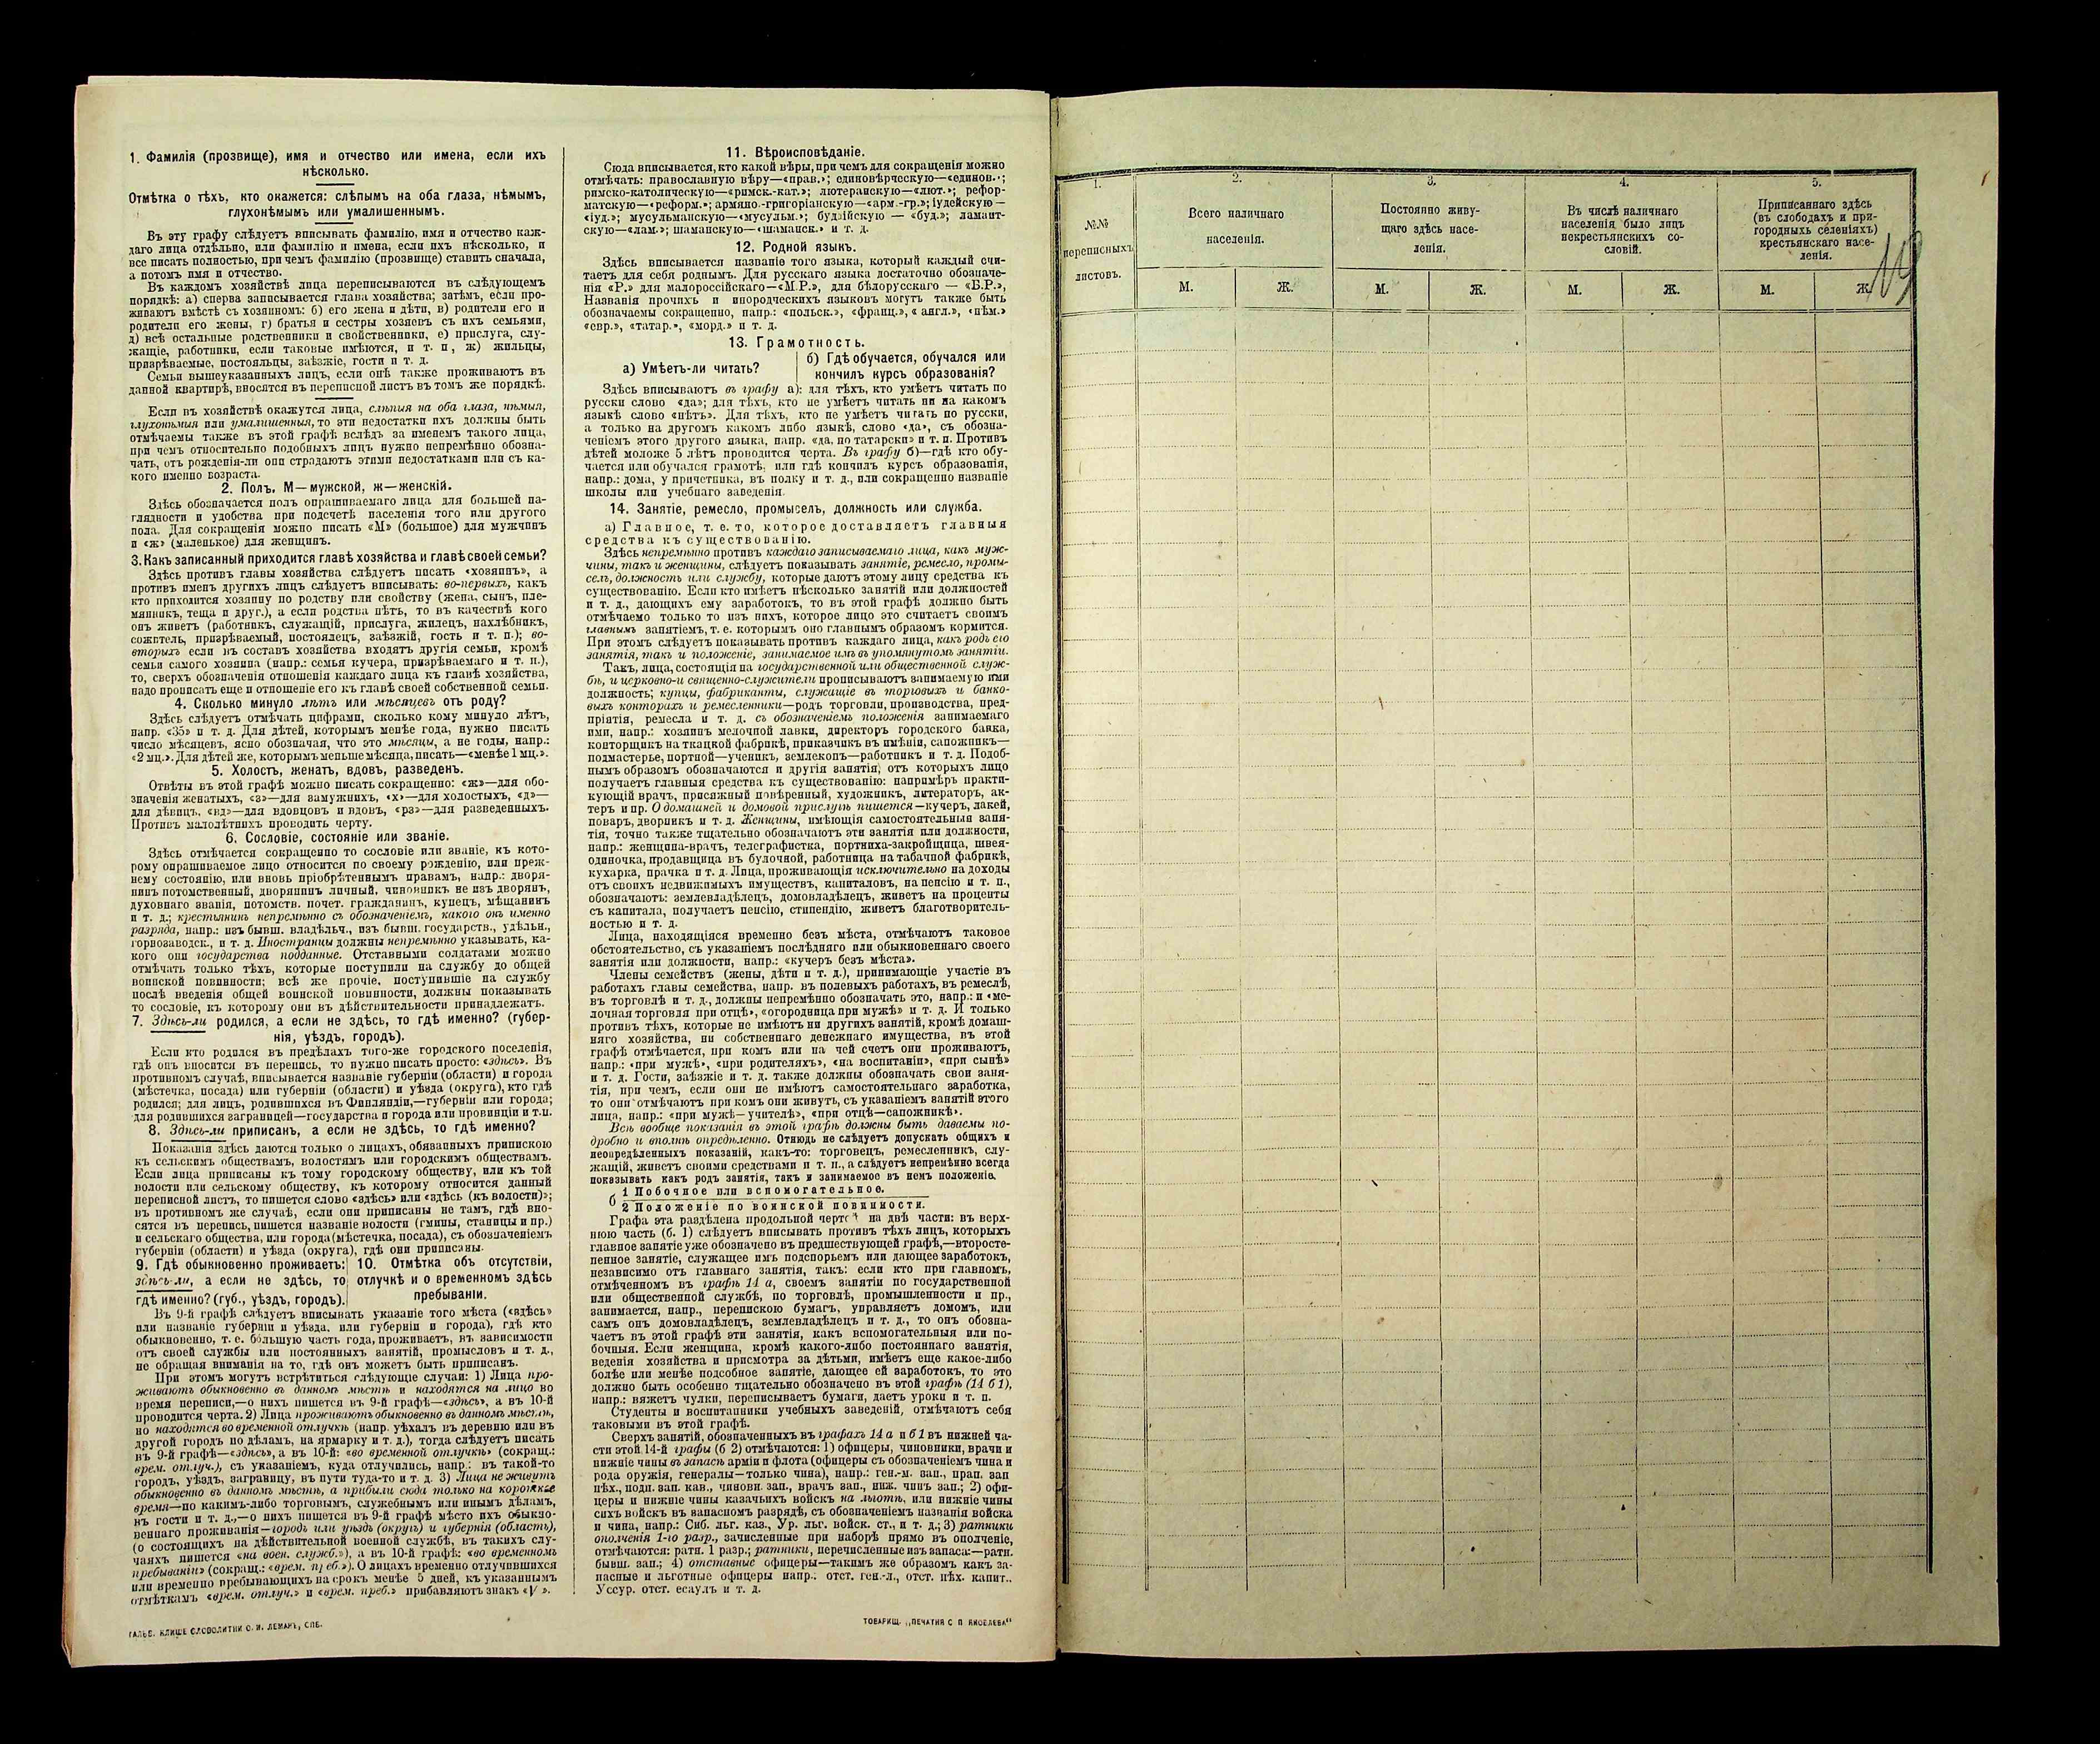 1. Фамилія (прозвище), имя и отчество или имена, если ихъ
нѣсколько.
Отмѣтка о тѣхъ, кто окажется: слѣпымъ на оба глаза, нѣмымъ,
глухонѣмымъ или умалишеннымъ.
Въ эту графу слѣдуетъ вписывать фамилію, имя и отчество каж-
даго лица отдѣльно, или фамилію и имена, если ихъ нѣсколько, и
все писать полностью, при чемъ фамилію (прозвище) ставить сначала,
а потомъ имя и отчество.
Въ каждомъ хозяйствѣ лица переписываются въ слѣдующемъ
порядкѣ: а) сперва записывается глава хозяйства; затѣмъ, если про-
живаютъ вмѣстѣ съ хозяиномъ: б) его жена и дѣти, в) родители его и
родители его жены, г) братья и сестры хозяевъ съ ихъ семьями,
д) всѣ остальные родственники и свойственники, е) прислуга, слу-
жащіе, работники, если таковые имѣются, и т. п, ж) жильцы,
призрѣваемые, постояльцы, заѣзжіе, гости и т. д.
Семьи вышеуказанныхъ лицъ, если онѣ также проживаютъ въ
данной квартирѣ, вносятся въ переписной листъ въ томъ же порядкѣ.
Если въ хозяйствѣ окажутся лица, слѣпыя на оба глаза, нѣмыя,
глухонѣмыя или умалишенныя, то эти недостатки ихъ должны быть
отмѣчаемы также въ этой графѣ вслѣдъ за именемъ такого лица,
при чемъ относительно подобныхъ лицъ нужно непремѣнно обозна-
чать, отъ рожденія-ли они страдаютъ этими недостатками или съ ка-
кого именно возраста.
2. Полъ. М—мужской, ж—женскій.
Здѣсь обозначается полъ опрашиваемаго лица для большей на-
глядности и удобства при подсчетѣ населенія того или другого
пола. Для сокращенія можно писать «М» (большое) для мужчинъ
и «ж» (маленькое) для женщинъ.
3. Какъ записанный приходится главѣ хозяйства и главѣ своей семьи?
Здѣсь противъ главы хозяйства слѣдуетъ писать «хозяинъ», а
противъ именъ другихъ лицъ слѣдуетъ вписывать: во-первыхъ, какъ
кто приходится хозяину по родству или свойству (жена, сынъ, пле-
мянникъ, теща и друг.), а если родства нѣтъ, то въ качествѣ кого
онъ живетъ (работникъ, служащій, прислуга, жилецъ, нахлѣбникъ,
сожитель, призрѣваемый, постоялецъ, заѣзжій, гость и т. п.); во-
вторыхъ если въ составъ хозяйства входятъ другія семьи, кромѣ
семьи самого хозяина (напр.: семья кучера, призрѣваемаго и т. п.),
то, сверхъ обозначенія отношенія каждаго лица къ главѣ хозяйства,
надо прописать еще и отношеніе его къ главѣ своей собственной семьи.
4. Сколько минуло лѣтъ или мѣсяцевъ отъ роду?
Здѣсь слѣдуетъ отмѣчать цифрами, сколько кому минуло лѣтъ,
напр. «35» и т. д. Для дѣтей, которымъ менѣе года, нужно писать
число мѣсяцевъ, ясно обозначая, что это мѣсяцы, а не годы, напр.:
«2 мц.». Для дѣтей же, которымъ меньше мѣсяца, писать—«менѣе 1 мц.».
5. Холостъ, женатъ, вдовъ, разведенъ.
Отвѣты въ этой графѣ можно писать сокращенно: «ж»—для обо-
значенія женатыхъ, «з»—для замужнихъ, «х»—для холостыхъ, «д»—
для дѣвицъ, «вд»—для вдовцовъ и вдовъ, «рз»—для разведенныхъ.
Противъ малолѣтнихъ проводить черту.
6. Сословіе, состояніе или званіе.
Здѣсь отмѣчается сокращенно то сословіе или званіе, къ кото-
рому опрашиваемое лицо относится по своему рожденію, или преж-
нему состоянію, или вновь пріобрѣтеннымъ правамъ, напр.: дворя-
нинъ потомственный, дворянинъ личный, чиновникъ не изъ дворянъ,
духовнаго званія, потомств. почет. гражданинъ, купецъ, мѣщанинъ
и т. д.; крестьянинъ непремѣнно съ обозначеніемъ, какого онъ именно
разряда, напр.: изъ бывш. владѣльч., изъ бывш. государств., удѣльн.,
горнозаводск., и т. д. Иностранцы должны непремѣнно указывать, ка-
кого они государства подданные. Отставными солдатами можно
отмѣчать только тѣхъ, которые поступили на службу до общей
воинской повинности; всѣ же прочіе, поступившіе на службу
послѣ введенія общей воинской повинности, должны показывать
то сословіе, къ которому они въ дѣйствительности принадлежатъ.
7. Здѣсь-ли родился, а если не здѣсь, то гдѣ именно? (губер-
нія, уѣздъ, городъ).
Если кто родился въ предѣлахъ того-же городского поселенія,
гдѣ онъ вносится въ перепись, то нужно писать просто: «здѣсь». Въ
противномъ случаѣ, вписывается названіе губерніи (области) и города
(мѣстечка, посада) или губерніи (области) и уѣзда (округа), кто гдѣ
родился; для лицъ, родившихся въ Финляндіи,—губерніи или города;
для родившихся заграницей—государства и города или провинціи и т.п.
8. Здѣсь-ли приписанъ, а если не здѣсь, то гдѣ именно?
Показанія здѣсь даются только о лицахъ, обязанныхъ припискою
къ сельскимъ обществамъ, волостямъ или городскимъ обществамъ.
Если лица приписаны къ тому городскому обществу, или къ той
волости или сельскому обществу, къ которому относится данный
переписной листъ, то пишется слово «здѣсь» или «здѣсь (къ волости)»;
въ противномъ же случаѣ, если они приписаны не тамъ, гдѣ вно-
сятся въ перепись, пишется названіе волости (гмины, станицы и пр.)
и сельскаго общества, или города (мѣстечка, посада), съ обозначеніемъ
губерніи (области) и уѣзда (округа), гдѣ они приписаны.
9. Гдѣ обыкновенно проживаетъ:
здѣсь-ли, а если не здѣсь, то
гдѣ именно? (губ., уѣздъ, городъ).
10. Отмѣтка объ отсутствіи,
отлучкѣ и о временномъ здѣсь
пребываніи.
Въ 9-й графѣ слѣдуетъ вписывать указаніе того мѣста («здѣсь»
или названіе губерніи и уѣзда, или губерніи и города), гдѣ кто
обыкновенно, т. е. бо́льшую часть года, проживаетъ, въ зависимости
отъ своей службы или постоянныхъ занятій, промысловъ и т. д.,
не обращая вниманія на то, гдѣ онъ можетъ быть приписанъ.
При этомъ могутъ встрѣтиться слѣдующіе случаи: 1) Лица про-
живаютъ обыкновенно въ данномъ мѣстѣ и находятся на лицо во
время переписи,—о нихъ пишется въ 9-й графѣ—«здѣсь», а въ 10-й
проводится черта. 2) Лица проживаютъ обыкновенно въ данномъ мѣстѣ,
но находятся во временной отлучкѣ (напр. уѣхалъ въ деревню или въ
другой городъ по дѣламъ, на ярмарку и т. д.), тогда слѣдуетъ писать
въ 9-й графѣ—«здѣсь», а въ 10-й: «во временной отлучкѣ» (сокращ.:
врем. отлуч.), съ указаніемъ, куда отлучились, напр.: въ такой-то
городъ, уѣздъ, заграницу, въ пути туда-то и т. д. 3) Лица не живутъ
обыкновенно въ данномъ мѣстѣ, а прибыли сюда только на короткое
время—по какимъ-либо торговымъ, служебнымъ или инымъ дѣламъ,
въ гости и т. д.,—о нихъ пишется въ 9-й графѣ мѣсто ихъ обыкно-
веннаго проживанія—городъ или уѣздъ (округъ) и губернія (область),
(о состоящихъ на дѣйствительной военной службѣ, въ такихъ слу-
чаяхъ пишется «на воен. служб.»), а въ 10-й графѣ: «во временномъ
пребываніи» (сокращ.: «врем. преб.»). О лицахъ временно отлучившихся
или временно пребывающихъ на срокъ менѣе 5 дней, къ указаннымъ
отмѣткамъ «врем. отлуч.» и «врем. преб.» прибавляютъ знакъ «V».
ГАЛЬВ. КЛИШЕ СЛОВОЛИТНИ О. И. ЛЕМАНЪ, СПБ.
11. Вѣроисповѣданіе.
Сюда вписывается, кто какой вѣры, при чемъ для сокращенія можно
отмѣчать: православную вѣру—«прав.»; единовѣрческую—«единов.»;
римско-католическую—«римск.-кат.»; лютеранскую—«лют.»; рефор-
матскую—«реформ.»; армяно-григоріанскую—«арм.-гр.»; іудейскую—
«іуд.»; мусульманскую—«мусульм.»; буддійскую — «буд.»; ламаит-
скую—«лам.»; шаманскую—«шаманск.» и т. д.
12. Родной языкъ.
Здѣсь вписывается названіе того языка, который каждый счи-
таетъ для себя роднымъ. Для русскаго языка достаточно обозначе-
нія «Р.» для малороссійскаго—«М.Р.», для бѣлорусскаго — «Б.Р.»,
Названія прочихъ и инородческихъ языковъ могутъ также быть
обозначаемы сокращенно, напр.: «польск.», «франц.», « англ.», «нѣм.»
«евр.», «татар.», «морд.» и т. д.
13. Грамотность.
а) Умѣетъ-ли читать?
б) Гдѣ обучается, обучался или
кончилъ курсъ образованія?
Здѣсь вписываютъ въ графу а): для тѣхъ, кто умѣетъ читать по
русски слово «да»; для тѣхъ, кто не умѣетъ читать ни на какомъ
языкѣ слово «нѣтъ». Для тѣхъ, кто не умѣетъ читать по русски,
а только на другомъ какомъ либо языкѣ, слово «да», съ обозна-
ченіемъ этого другого языка, напр. «да, по татарски» и т. п. Противъ
дѣтей моложе 5 лѣтъ проводится черта. Въ графу б)—гдѣ кто обу-
чается или обучался грамотѣ, или гдѣ кончилъ курсъ образованія,
напр.: дома, у причетника, въ полку и т. д., или сокращенно названіе
школы или учебнаго заведенія.
14. Занятіе, ремесло, промыселъ, должность или служба.
а) Главное, т. е. то, которое доставляетъ главныя
средства къ существованію.
Здѣсь непремѣнно противъ каждаго записываемаго лица, какъ муж-
чины, такъ и женщины, слѣдуетъ показывать занятіе, ремесло, промы-
селъ, должность или службу, которые даютъ этому лицу средства къ
существованію. Если кто имѣетъ нѣсколько занятій или должностей
и т. д., дающихъ ему заработокъ, то въ этой графѣ должно быть
отмѣчаемо только то изъ нихъ, которое лицо это считаетъ своимъ
главнымъ занятіемъ, т. е. которымъ оно главнымъ образомъ кормится.
При этомъ слѣдуетъ показывать противъ каждаго лица, какъ родъ его
занятія, такъ и положеніе, занимаемое имъ въ упомянутомъ занятіи.
Такъ, лица, состоящія на государственной или общественной служ-
бѣ, и церковно-и священно-служители прописываютъ занимаемую ими
должность; купцы, фабриканты, служащіе въ торговыхъ и банко-
выхъ конторахъ и ремесленники—родъ торговли, производства, пред-
пріятія, ремесла и т. д. съ обозначеніемъ положенія занимаемаго
ими, напр.: хозяинъ мелочной лавки, директоръ городского банка,
конторщикъ на ткацкой фабрикѣ, приказчикъ въ имѣніи, сапожникъ—
подмастерье, портной—ученикъ, землекопъ—работникъ и т. д. Подоб-
нымъ образомъ обозначаются и другія занятія, отъ которыхъ лицо
получаетъ главныя средства къ существованію: напримѣръ практи-
кующій врачъ, присяжный повѣренный, художникъ, литераторъ, ак-
теръ и пр. О домашней и домовой прислугѣ пишется—кучеръ, лакей,
поваръ, дворникъ и т. д. Женщины, имѣющія самостоятельныя заня-
тія, точно также тщательно обозначаютъ эти занятія или должности,
напр.: женщина-врачъ, телеграфистка, портниха-закройщица, швея-
одиночка, продавщица въ булочной, работница на табачной фабрикѣ,
кухарка, прачка и т. д. Лица, проживающія исключительно на доходы
отъ своихъ недвижимыхъ имуществъ, капиталовъ, на пенсію и т. п.,
обозначаютъ: землевладѣлецъ, домовладѣлецъ, живетъ на проценты
съ капитала, получаетъ пенсію, стипендію, живетъ благотворитель-
ностью и т. д.
Лица, находящіяся временно безъ мѣста, отмѣчаютъ таковое
обстоятельство, съ указаніемъ послѣдняго или обыкновеннаго своего
занятія или должности, напр.: «кучеръ безъ мѣста».
Члены семействъ (жены, дѣти и т. д.), принимающіе участіе въ
работахъ главы семейства, напр. въ полевыхъ работахъ, въ ремеслѣ,
въ торговлѣ и т. д., должны непремѣнно обозначать это, напр.: и «ме-
лочная торговля при отцѣ», «огородница при мужѣ» и т. д. И только
противъ тѣхъ, которые не имѣютъ ни другихъ занятій, кромѣ домаш-
няго хозяйства, ни собственнаго денежнаго имущества, въ этой
графѣ отмѣчается, при комъ или на чей счетъ они проживаютъ,
напр.: «при мужѣ», «при родителяхъ», «на воспитаніи», «при сынѣ»
и т. д. Гости, заѣзжіе и т. д. также должны обозначать свои заня-
тія, при чемъ, если они не имѣютъ самостоятельнаго заработка,
то они отмѣчаютъ при комъ они живутъ, съ указаніемъ занятій этого
лица, напр.: «при мужѣ—учителѣ», «при отцѣ—сапожникѣ».
Всѣ вообще показанія въ этой графѣ должны быть даваемы по-
дробно и вполнѣ опредѣленно. Отнюдь не слѣдуетъ допускать общихъ и
неопредѣленныхъ показаній, какъ-то: торговецъ, ремесленникъ, слу-
жащій, живетъ своими средствами и т. п., а слѣдуетъ непремѣнно всегда
показывать какъ родъ занятія, такъ и занимаемое въ немъ положеніе.
б 1 Побочное или вспомогательное.
2 Положеніе по воинской повинности.
Графа эта раздѣлена продольной чертой на двѣ части: въ верх-
нюю часть (б. 1) слѣдуетъ вписывать противъ тѣхъ лицъ, которыхъ
главное занятіе уже обозначено въ предшествующей графѣ,—второсте-
пенное занятіе, служащее имъ подспорьемъ или дающее заработокъ,
независимо отъ главнаго занятія, такъ: если кто при главномъ,
отмѣченномъ въ графѣ 14 а, своемъ занятіи по государственной
или общественной службѣ, по торговлѣ, промышленности и пр.,
занимается, напр., перепискою бумагъ, управляетъ домомъ, или
самъ онъ домовладѣлецъ, землевладѣлецъ и т. д., то онъ обозна-
чаетъ въ этой графѣ эти занятія, какъ вспомогательныя или по-
бочныя. Если женщина, кромѣ какого-либо постояннаго занятія,
веденія хозяйства и присмотра за дѣтьми, имѣетъ еще какое-либо
болѣе или менѣе подсобное занятіе, дающее ей заработокъ, то это
должно быть особенно тщательно обозначено въ этой графѣ (14 б 1),
напр.: вяжетъ чулки, переписываетъ бумаги, даетъ уроки и т. п.
Студенты и воспитанники учебныхъ заведеній, отмѣчаютъ себя
таковыми въ этой графѣ.
Сверхъ занятій, обозначенныхъ въ графахъ 14 а и б 1 въ нижней ча-
сти этой 14-й графы (б 2) отмѣчаются: 1) офицеры, чиновники, врачи и
нижніе чины въ запасѣ арміи и флота (офицеры съ обозначеніемъ чина и
рода оружія, генералы—только чина), напр.: ген.-м. зап., прап. зап
пѣх., подп. зап. кав., чиновн. зап., врачъ зап., ниж. чинъ зап.; 2) офи-
церы и нижніе чины казачьихъ войскъ на льготѣ, или нижніе чины
сихъ войскъ въ запасномъ разрядѣ, съ обозначеніемъ названія войска
и чина, напр.: Сиб. льг. каз., Ур. льг. войск. ст., и т. д.; 3) ратники
ополченія 1-го разр., зачисленные при наборѣ прямо въ ополченіе,
отмѣчаются: ратн. 1 разр.; ратники, перечисленные изъ запаса:—ратн.
бывш. зап.; 4) отставные офицеры—такимъ же образомъ какъ за-
пасные и льготные офицеры напр.: отст. ген.-л., отст. пѣх. капит..
Уссур. отст. есаулъ и т. д.
ТОВАРИЩ. „ПЕЧАТНЯ С П ЯКОВЛЕВА“
1.
№№
переписныхъ
листовъ.
2.
Всего наличнаго
населенія.
М.
Ж.
3.
Постоянно живу-
щаго здѣсь насе-
ленія.
М.
Ж.
4.
Въ числѣ наличнаго
населенія было лицъ
некрестьянскихъ со-
словій.
М.
Ж.
5.
Приписаннаго здѣсь
(въ слободахъ и при-
городныхъ селеніяхъ)
крестьянскаго насе-
ленія.
М.
Ж.